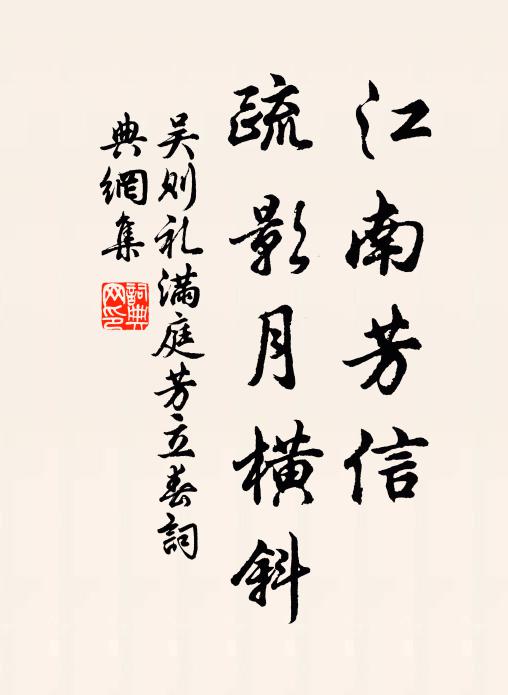 江南芳信
疏影月橫斜
吴则礼满庭芳立春詞
典網集
詞典網印